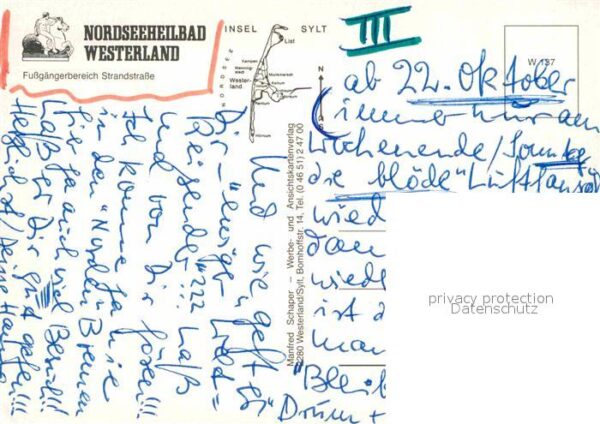 NORDSEEHEILBAD
WESTERLAND
Fußgängerbereich Strandstraße
INSEL SYLT
NORDSEE
List
Kampen
Westerland
Keitum
Hörnum
N
Manfred Schaper – Werbe- und Ansichtskartenverlag
2280 Westerland/Sylt, Bomhoffstr. 14, Tel. (0 46 51) 2 47 00
W 137
III
ab 22. Oktober
immer nur am
Wochenende/Sonntag
die "blöde" Lufthansa
wied
dan
wiede
ist d
man
"Bleib
Drum +
Und wie geht es
Dir – "ewiger" Lied=
"Reisender"???
und von Dir hören!!!
Laß
Ich komme ja nie
in den "Norden" Bremen
hier ja auch viel Besuch!!!
Laß es Dir gut gehen!!!
Herzlichst/Deine
privacy protection
Datenschutz